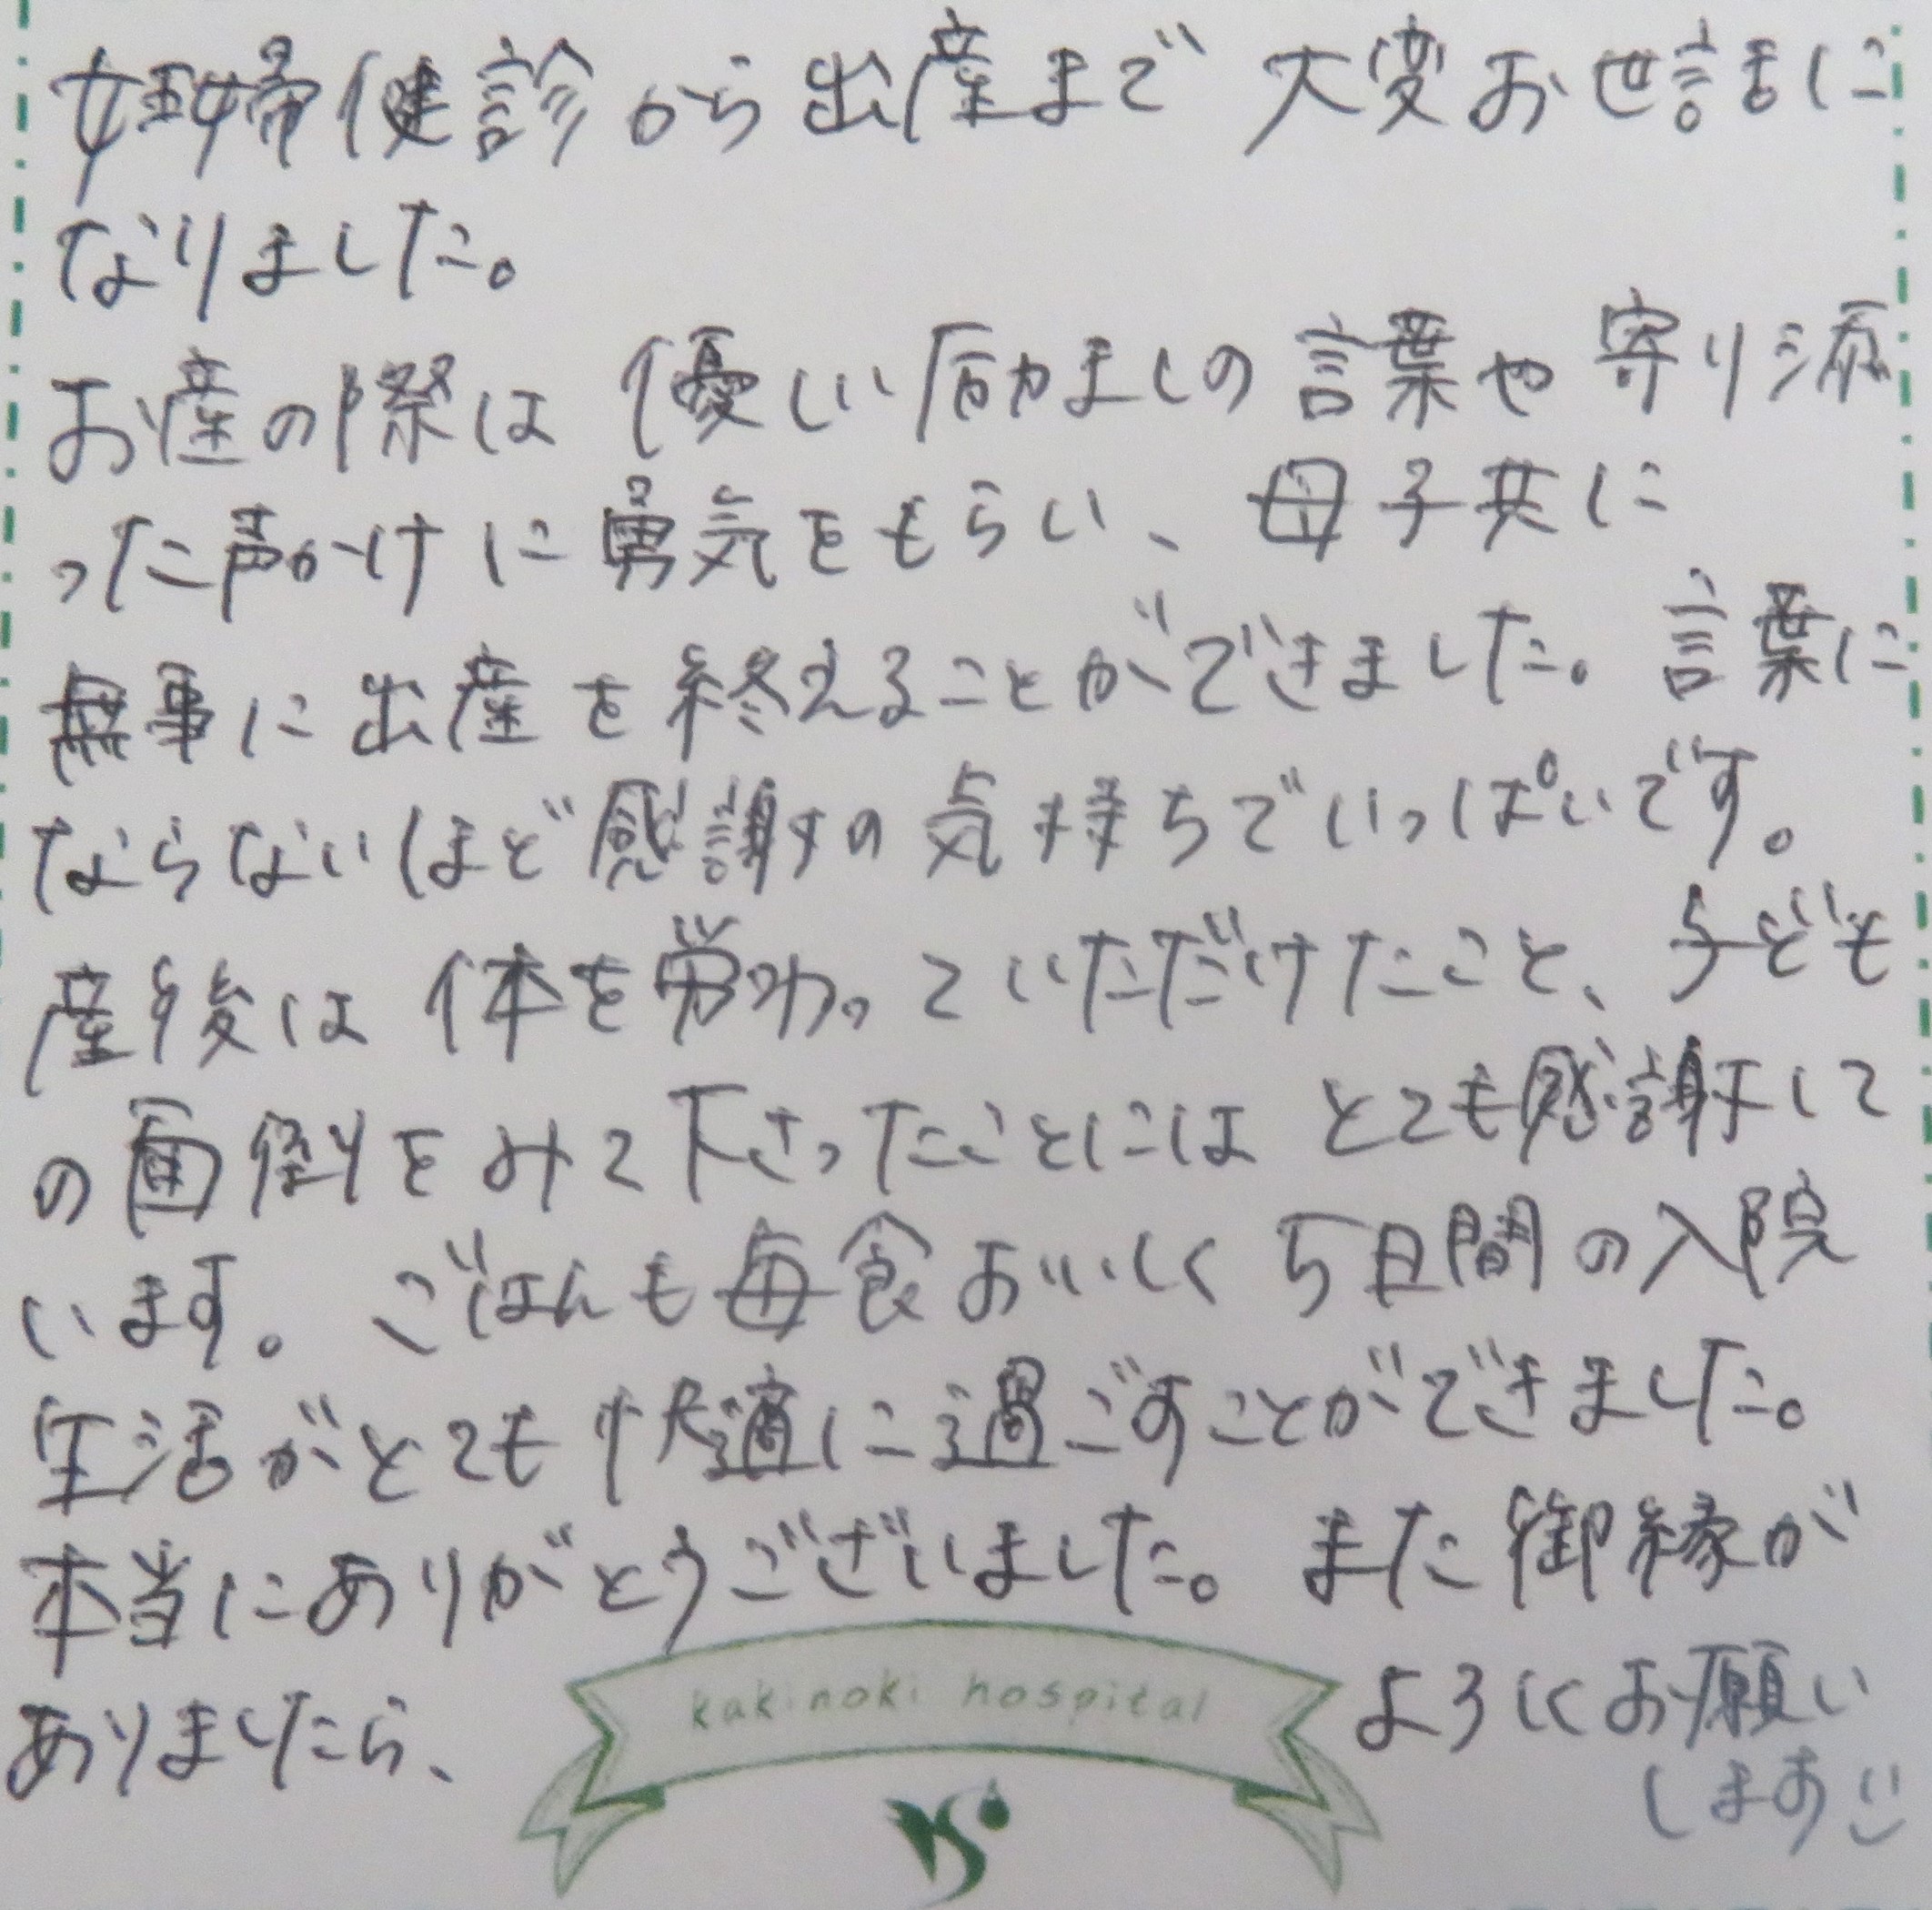 妊婦健診から出産まで 大変お世話に
なりました。
お産の際は 優しい励ましの 言葉や 寄り添
った声かけに 勇気をもらい、母子共に
無事に出産を終えることができました。言葉に
ならないほど感謝の気持ちでいっぱいです。
産後は 体を労わっていただけたこと、子ども
の面倒をみて下さったことには とても感謝して
います。ごはんも毎食おいしく 5日間の入院
生活がとても快適に過ごすことができました。
本当にありがとうございました。また御縁が
ありましたら、
kakinoki hospital
よろしくお願い
します